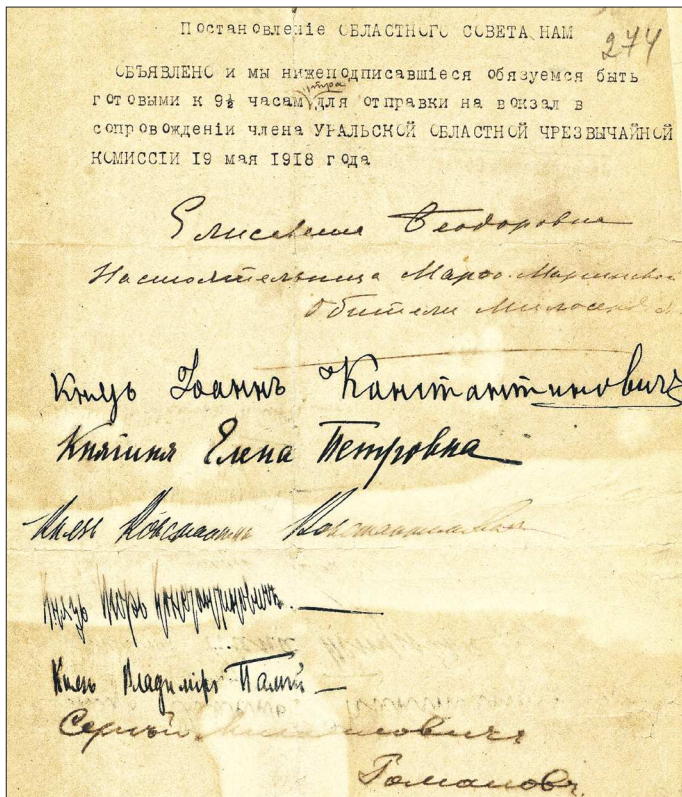 Постановленіе ОБЛАСТНОГО СОВЕТА НАМ
274
ОБЪЯВЛЕНО и мы нижеподписавшіеся обязуемся быть
утра
готовыми к 9½ часам для отправки на вокзал в
сопровожденіи члена УРАЛЬСКОЙ ОБЛАСТНОЙ ЧРЕЗВЫЧАЙНОЙ
КОМИССІИ 19 мая 1918 года
Елисавета Ѳеодоровна
Настоятельница Марѳо-Маріинской
Обители Милосерд
Князь Іоаннъ Константиновичъ
Княгиня Елена Петровна
Князь Константинъ Константиновичъ
Князь Игорь Константиновичъ
Князь Владиміръ Палѣй
Сергѣй Михаиловичъ
Романовъ